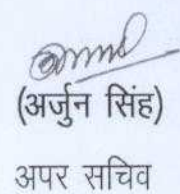 (अर्जुन सिंह)
अपर सचिव